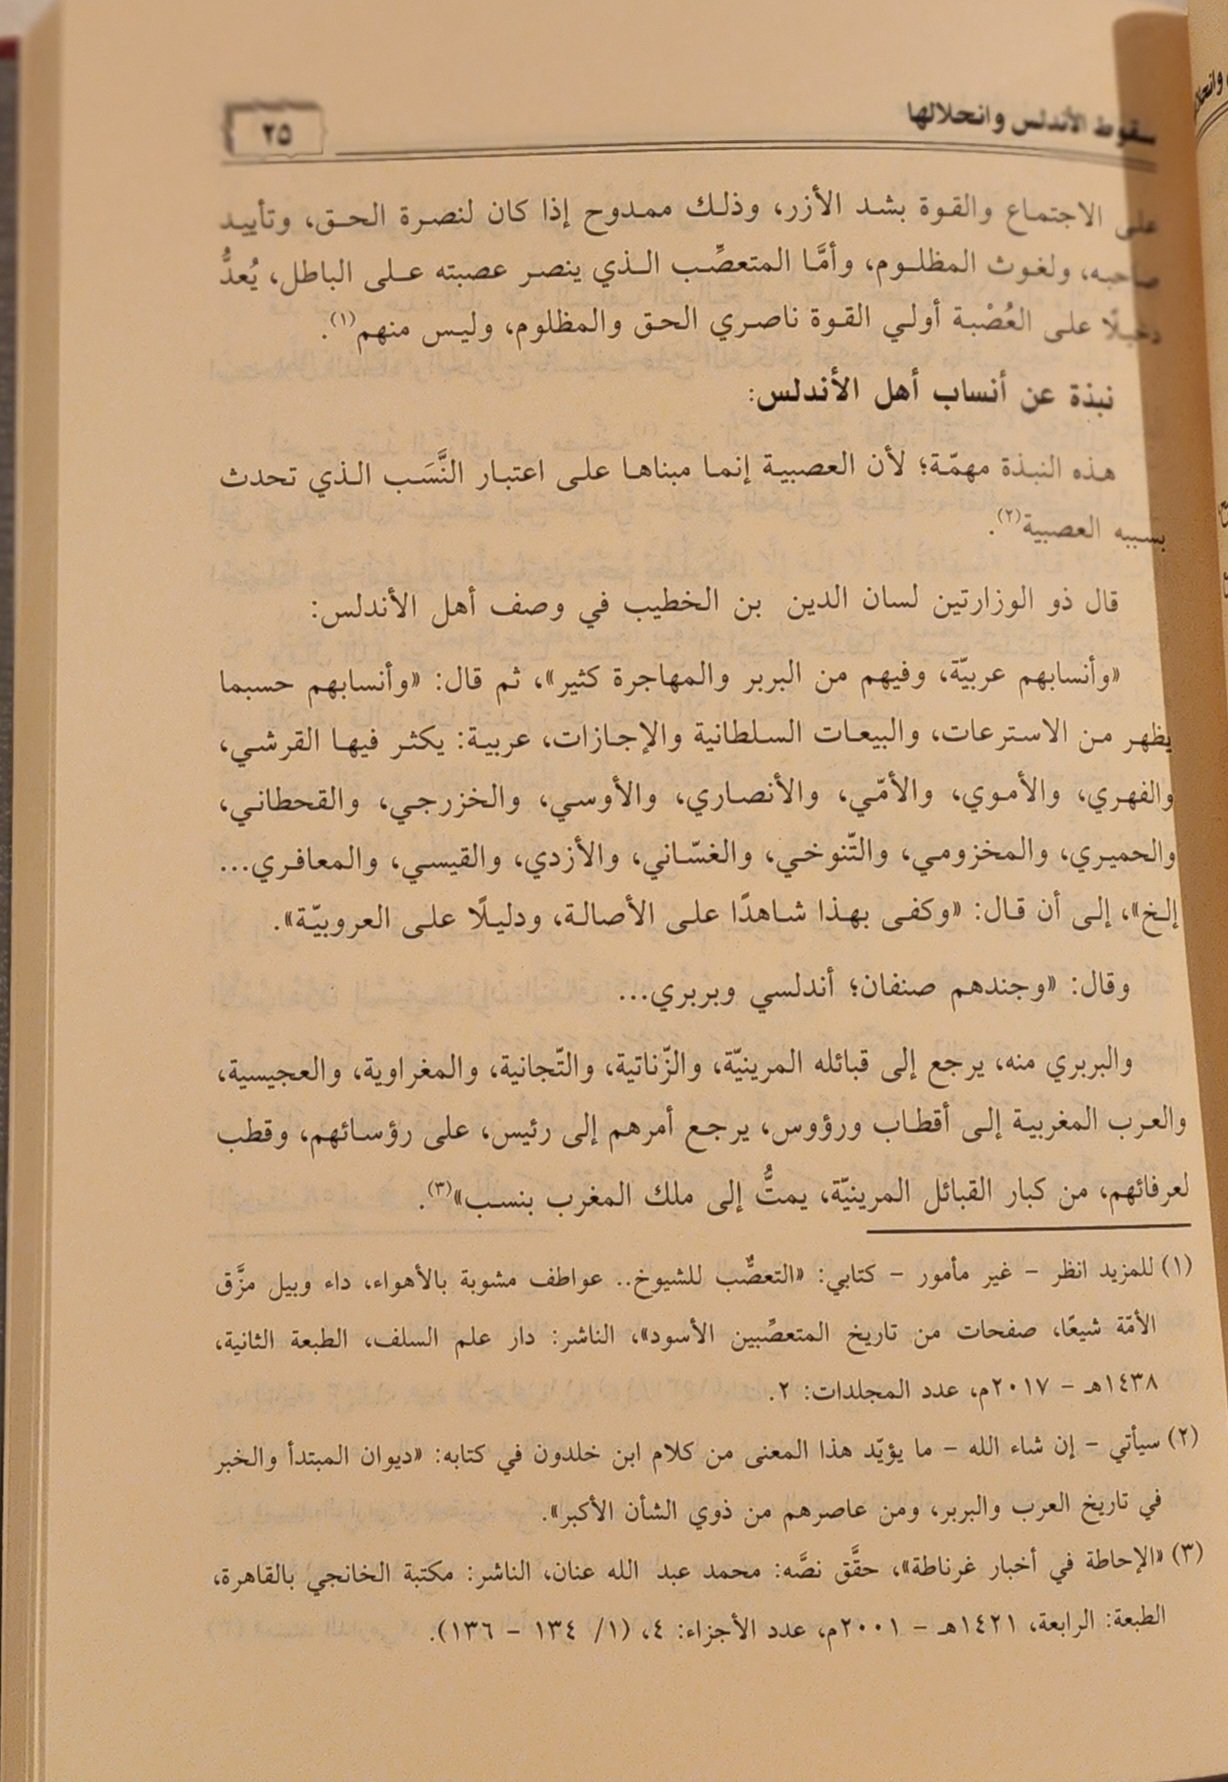 سقوط الأندلس وانحلالها
٢٥
على الاجتماع والقوة بشد الأزر، وذلك ممدوح إذا كان لنصرة الحق، وتأييد
صاحبه، ولغوث المظلوم، وأمَّا المتعصِّب الذي ينصر عصبته على الباطل، يُعدُّ
دخيلًا على العُصْبة أولي القوة ناصري الحق والمظلوم، وليس منهم(١).
نبذة عن أنساب أهل الأندلس:
هذه النبذة مهمّة؛ لأن العصبية إنما مبناها على اعتبار النَّسَب الذي تحدث
بسببه العصبية(٢).
قال ذو الوزارتين لسان الدين بن الخطيب في وصف أهل الأندلس:
«وأنسابهم عربيّة، وفيهم من البربر والمهاجرة كثير»، ثم قال: «وأنسابهم حسبما
يظهر من الاسترعات، والبيعات السلطانية والإجازات، عربية: يكثر فيها القرشي،
والفهري، والأموي، والأمّي، والأنصاري، والأوسي، والخزرجي، والقحطاني،
والحميري، والمخزومي، والتّنوخي، والغسّاني، والأزدي، والقيسي، والمعافري...
إلخ»، إلى أن قال: «وكفى بهذا شاهدًا على الأصالة، ودليلًا على العروبيّة».
وقال: «وجندهم صنفان؛ أندلسي وبربري...
والبربري منه، يرجع إلى قبائله المرينيّة، والزّناتية، والتّجانية، والمغراوية، والعجيسية،
والعرب المغربية إلى أقطاب ورؤوس، يرجع أمرهم إلى رئيس، على رؤسائهم، وقطب
لعرفائهم، من كبار القبائل المرينيّة، يمتُّ إلى ملك المغرب بنسب»(٣).
(١) للمزيد انظر - غير مأمور - كتابي: «التعصُّب للشيوخ.. عواطف مشوبة بالأهواء، داء وبيل مزَّق
الأمّة شيعًا، صفحات من تاريخ المتعصِّبين الأسود»، الناشر: دار علم السلف، الطبعة الثانية،
١٤٣٨هـ - ٢٠١٧م، عدد المجلدات: ٢.
(٢) سيأتي - إن شاء الله - ما يؤيّد هذا المعنى من كلام ابن خلدون في كتابه: «ديوان المبتدأ والخبر
في تاريخ العرب والبربر، ومن عاصرهم من ذوي الشأن الأكبر».
(٣) «الإحاطة في أخبار غرناطة»، حقَّق نصَّه: محمد عبد الله عنان، الناشر: مكتبة الخانجي بالقاهرة،
الطبعة: الرابعة، ١٤٢١هـ - ٢٠٠١م، عدد الأجزاء: ٤، (١/ ١٣٤ - ١٣٦).